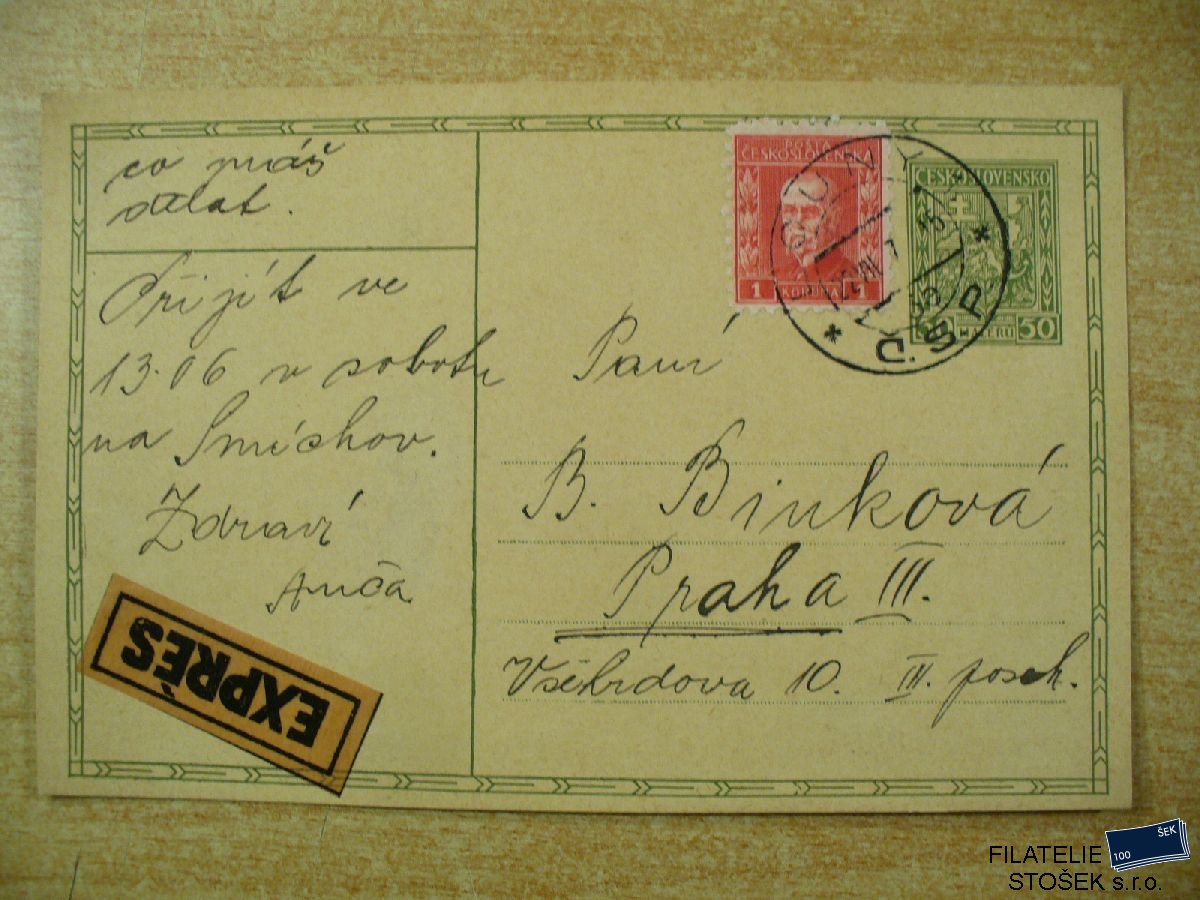 co máš
dělat.
Přijít ve
13.06 v sobotu
na Smíchov.
Zdraví
Anča
EXPRÈS
POŠTA
ČESKOSLOVENSKÁ
1 KORUNA 1
ČESKOSLOVENSKO
HALÉŘŮ 50
* Č.S.P. *
Paní
B. Binková
Praha III.
Všehrdova 10. III. posch.
100 ŠEK
FILATELIE
STOŠEK s.r.o.